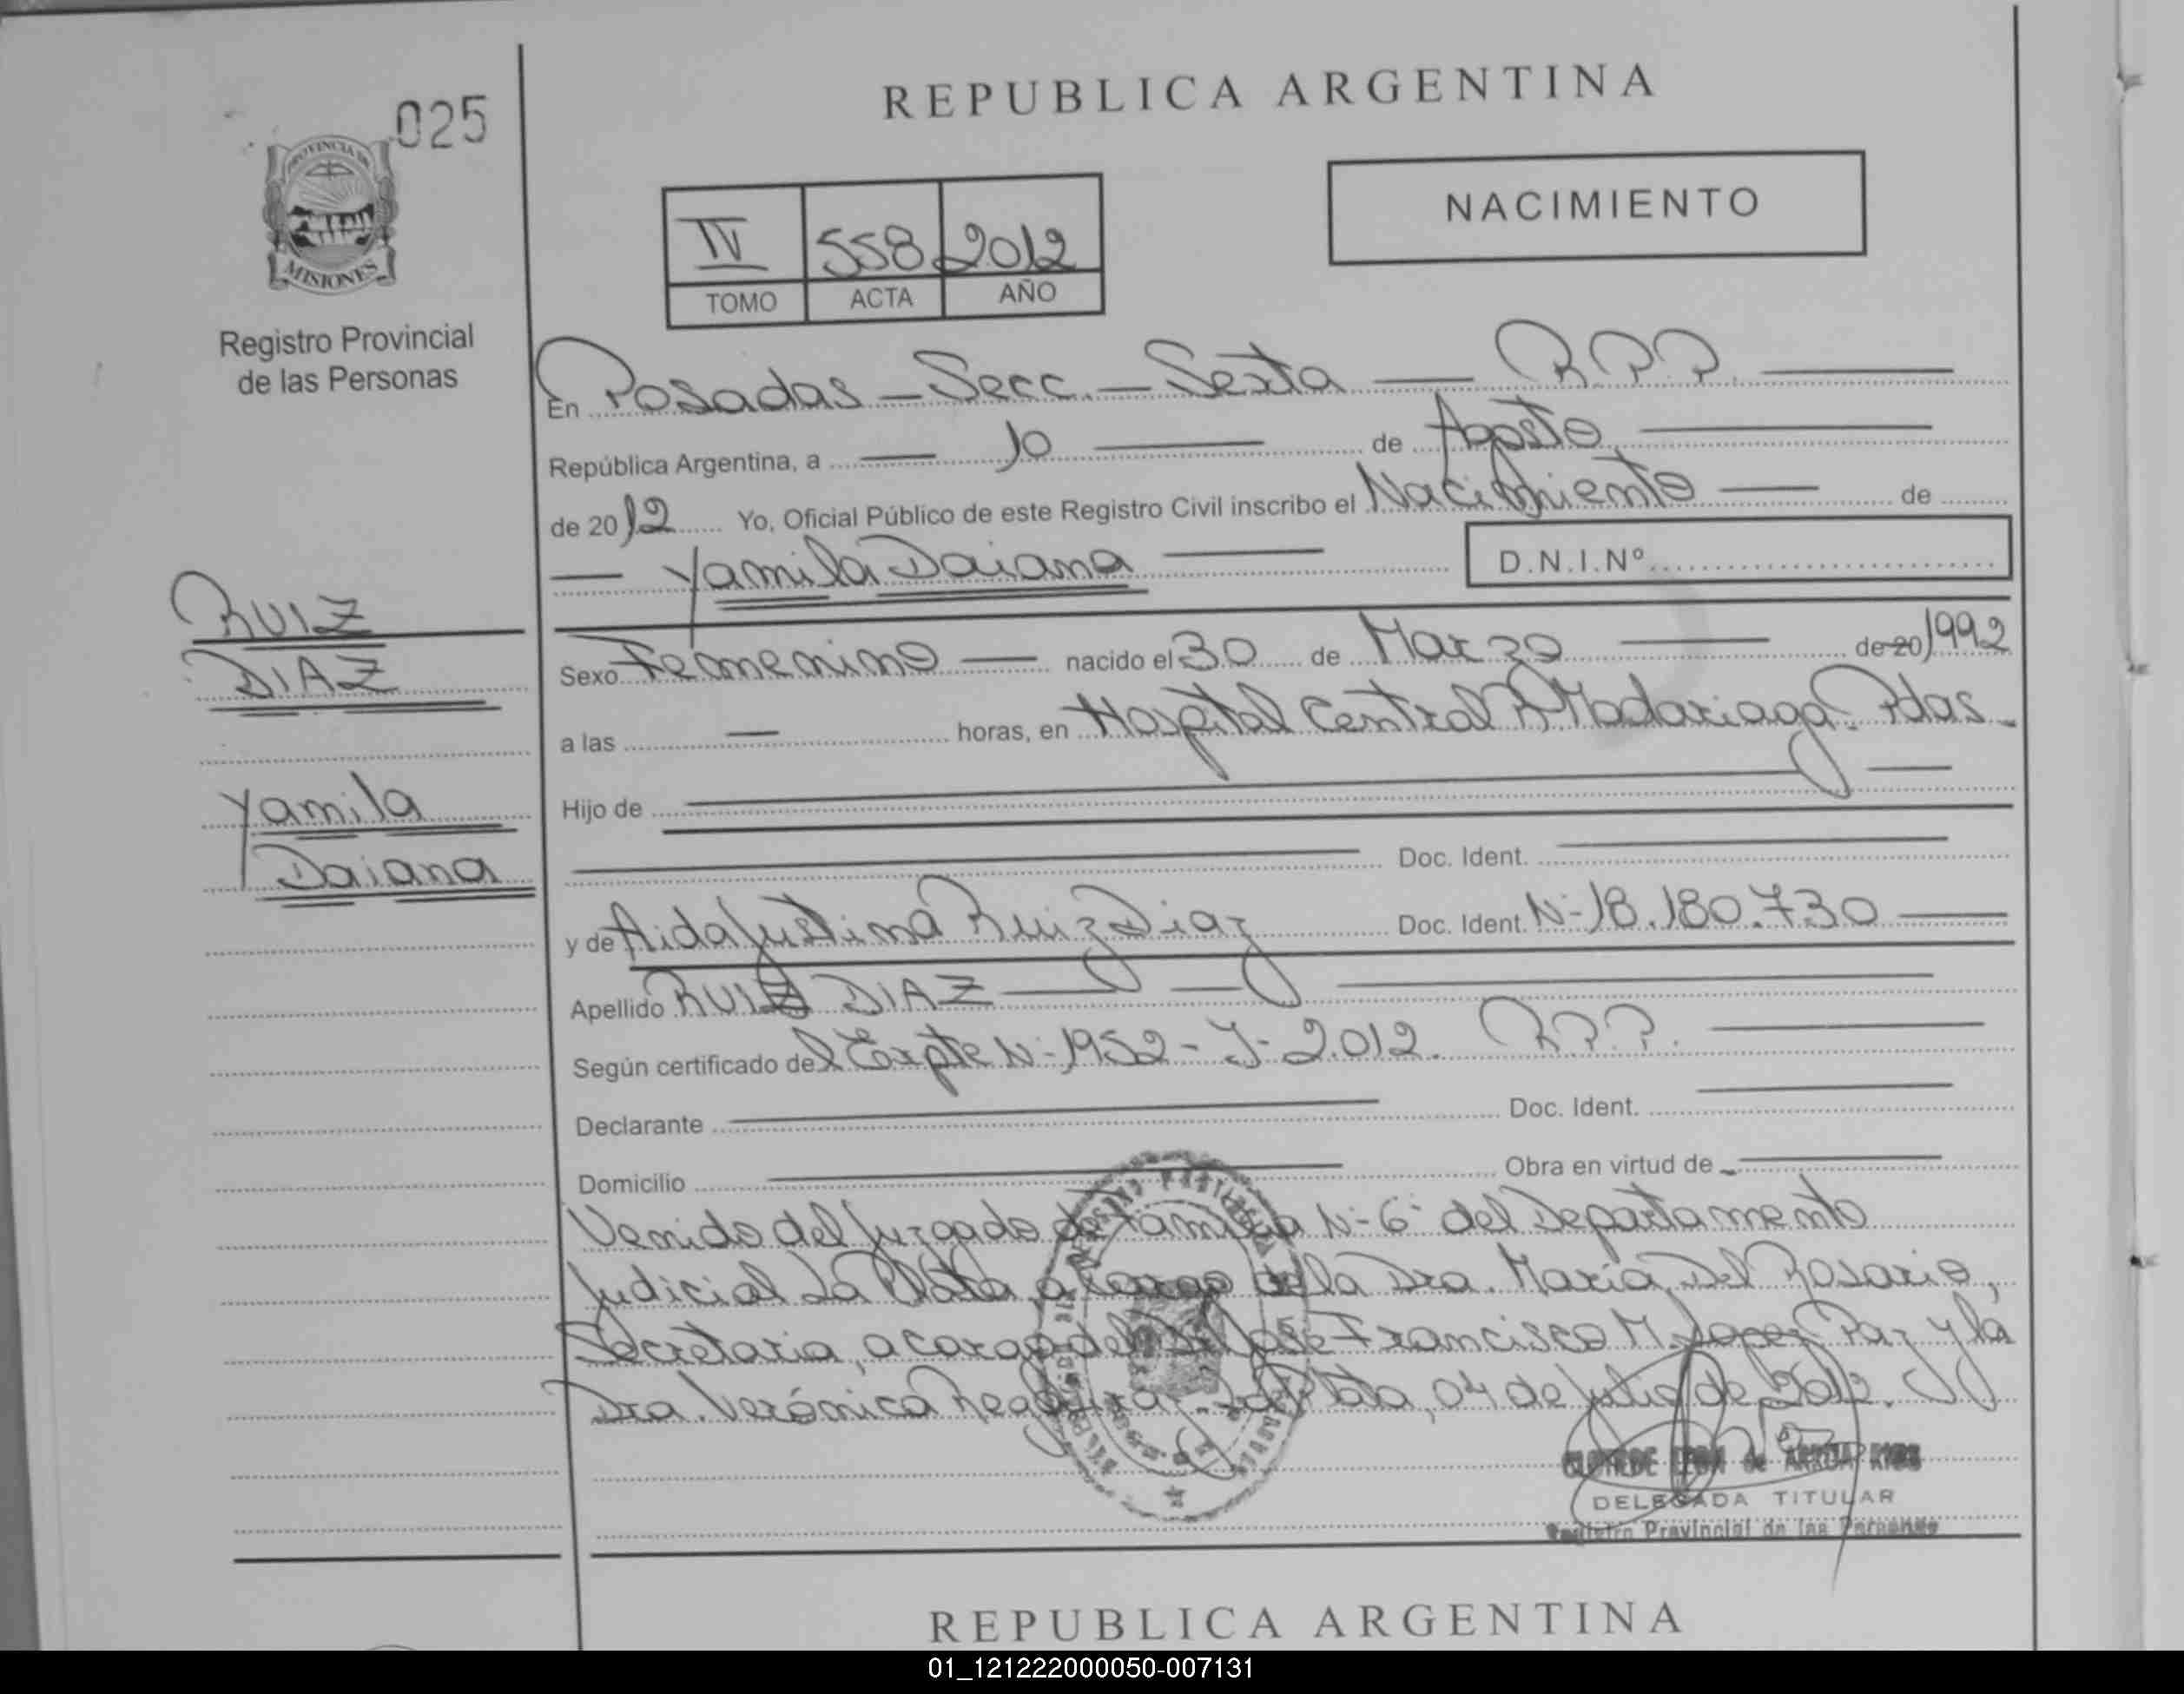 025
PROVINCIA DE
MISIONES
Registro Provincial
de las Personas
RUIZ
DIAZ
Yamila
Daiana
REPUBLICA ARGENTINA
IV 558 2012
TOMO ACTA AÑO
NACIMIENTO
En Posadas - Secc. - Sexta - R.P.P.
República Argentina, a 10 de Agosto
de 2012 Yo, Oficial Público de este Registro Civil inscribo el Nacimiento de
Yamila Daiana D.N.I.Nº
Sexo Femenino nacido el 30 de Marzo de 20 1992
a las — horas, en Hospital Central R. Madariaga. Pdas.
Hijo de
Doc. Ident.
y de Aida Justina Ruiz Diaz Doc. Ident. Nº 18.180.730
Apellido RUIZ DIAZ
Según certificado del Expte Nº 1952 - J - 2.012. R.P.P.
Declarante Doc. Ident.
Domicilio Obra en virtud de
Venido del Juzgado de Familia Nº 6 del Departamento
Judicial La Plata, a cargo de la Dra. Maria Del Rosario,
Secretaria, a cargo del Dr. Jose Francisco M. Lopez Paz y la
Dra. Verónica La Plata, 04 de Julio de 2012.
DELEGADA TITULAR
Registro Provincial de las Personas
REPUBLICA ARGENTINA
01_121222000050-007131